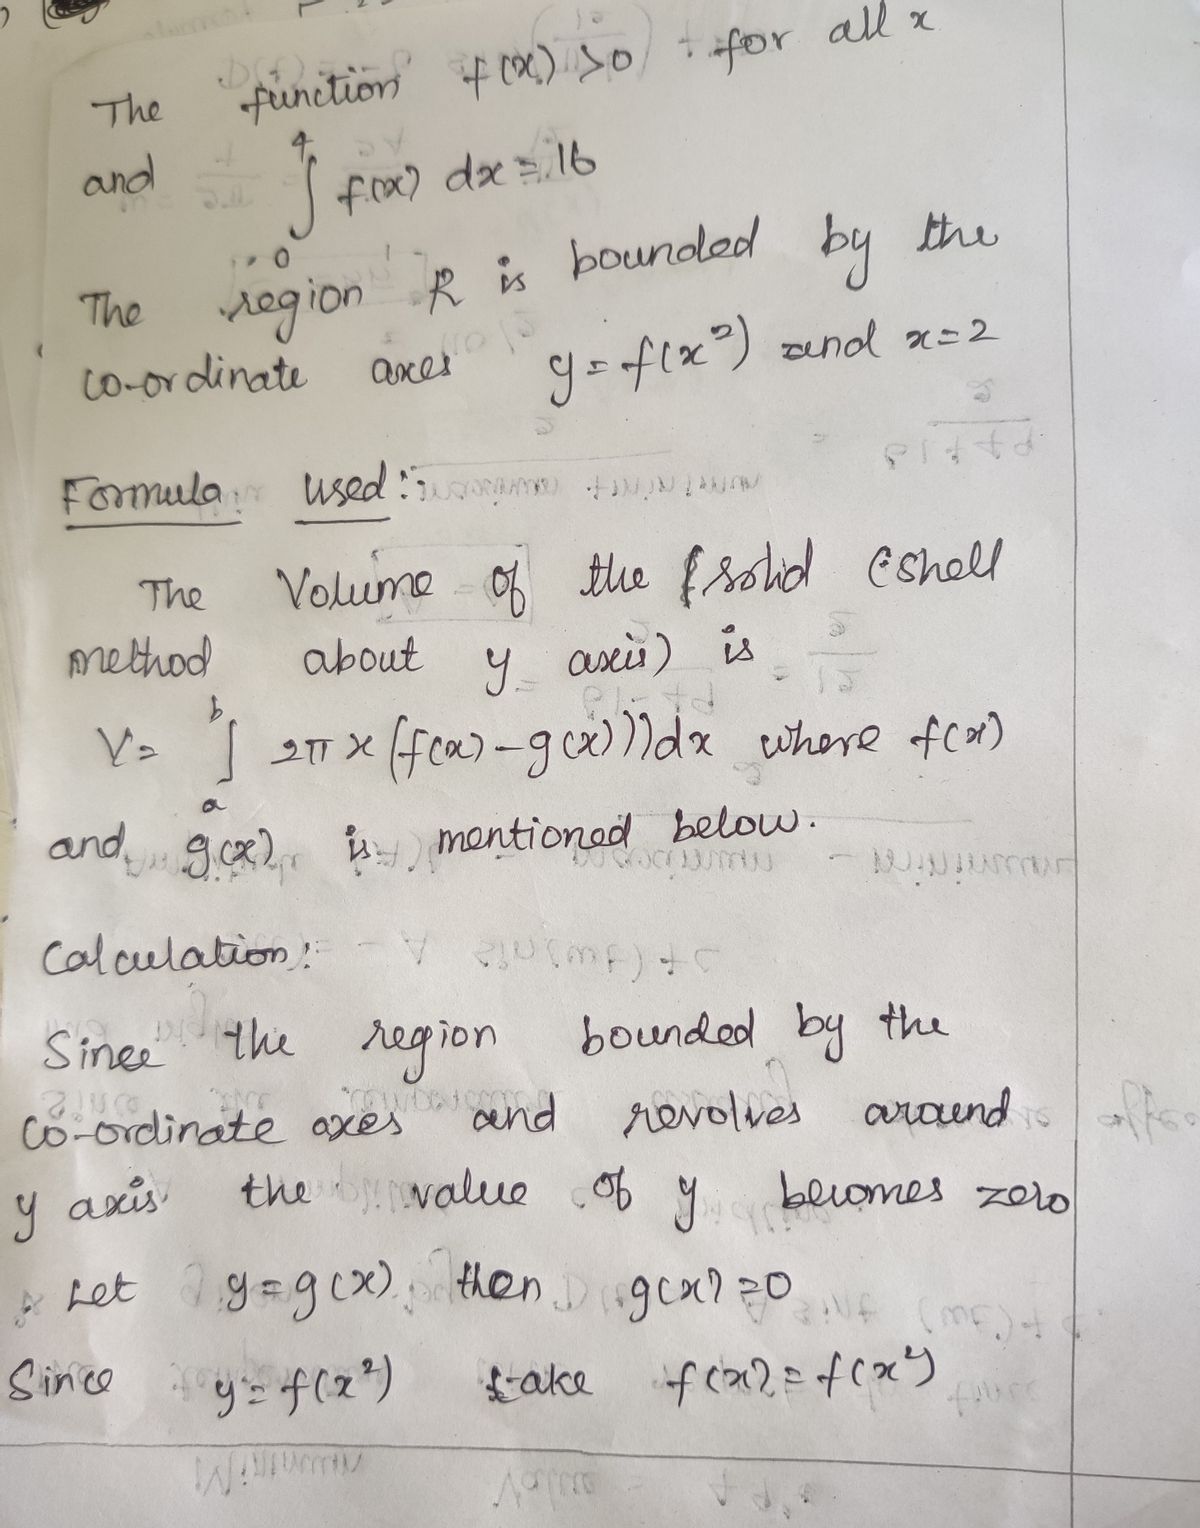 The function f(x) >0 for all x
and ∫₀⁴ f(x) dx = 16
The region R is bounded by the
co-ordinate axes y = f(x²) and x=2
Formula used:
The Volume of the solid (shell
method about y axis) is
V= ∫ₐᵇ 2π x (f(x) - g(x)))dx where f(x)
and g(x) is mentioned below.
Calculation:
Since the region bounded by the
co-ordinate axes and revolves around
y axis the value of y becomes zero
Let y = g(x) then g(x) = 0
Since y = f(x²) take f(x) = f(x²)